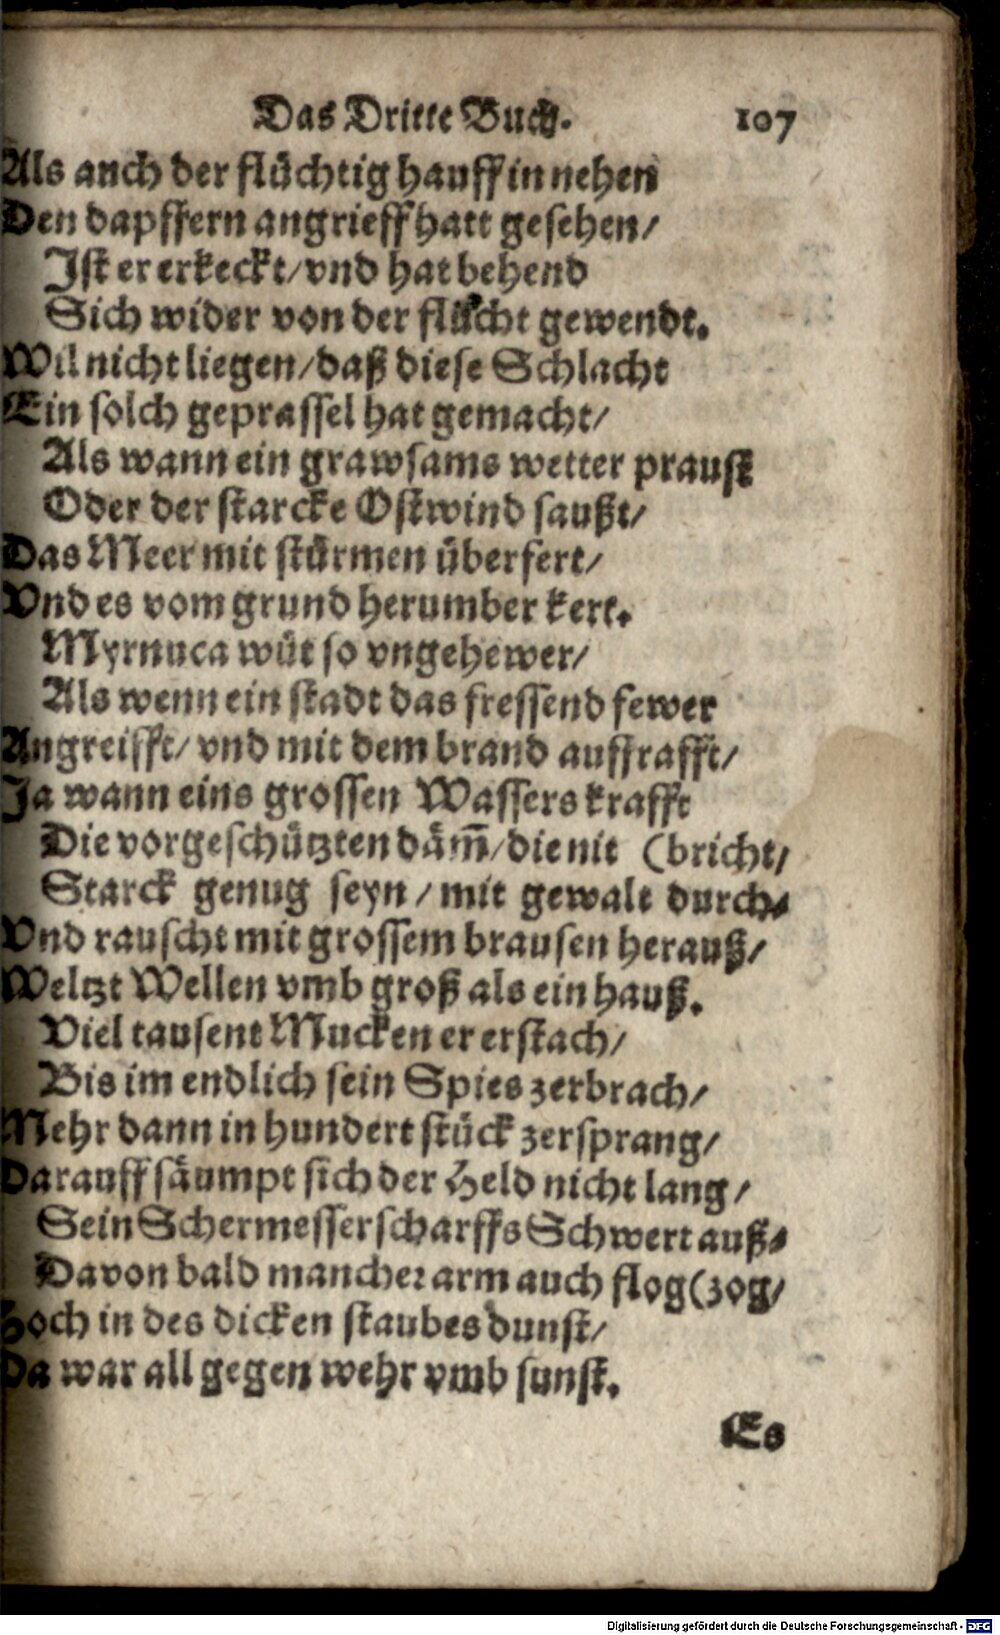 Das Dritte Buch. 107
Als auch der flüchtig hauff in nehen
Den dapffern angrieff hatt gesehen/
Ist er erkeckt/ vnd hat behend
Sich wider von der flücht gewendt.
Wil nicht liegen/ daß diese Schlacht
Ein solch geprassel hat gemacht/
Als wann ein grawsams wetter praust
Oder der starcke Ostwind saußt/
Das Meer mit stürmen überfert/
Vnd es vom grund herumber kert.
Myrnuca wüt so vngehewer/
Als wenn ein stadt das fressend fewer
Angreifft/ vnd mit dem brand auffrafft/
Ja wann eins grossen Wassers krafft
Die vorgeschützten däm̄/ die nit (bricht/
Starck genug seyn/ mit gewalt durch⸗
Vnd rauscht mit grossem brausen herauß/
Weltzt Wellen vmb groß als ein hauß.
Viel tausent Mucken er erstach/
Bis im endlich sein Spies zerbrach/
Mehr dann in hundert stück zersprang/
Darauff säumpt sich der Held nicht lang/
Sein Schermesserscharffs Schwert auß⸗
Davon bald mancher arm auch flog (zog/
Hoch in des dicken staubes dunst/
Da war all gegen wehr vmb sunst.
Es
Digitalisierung gefördert durch die Deutsche Forschungsgemeinschaft - DFG